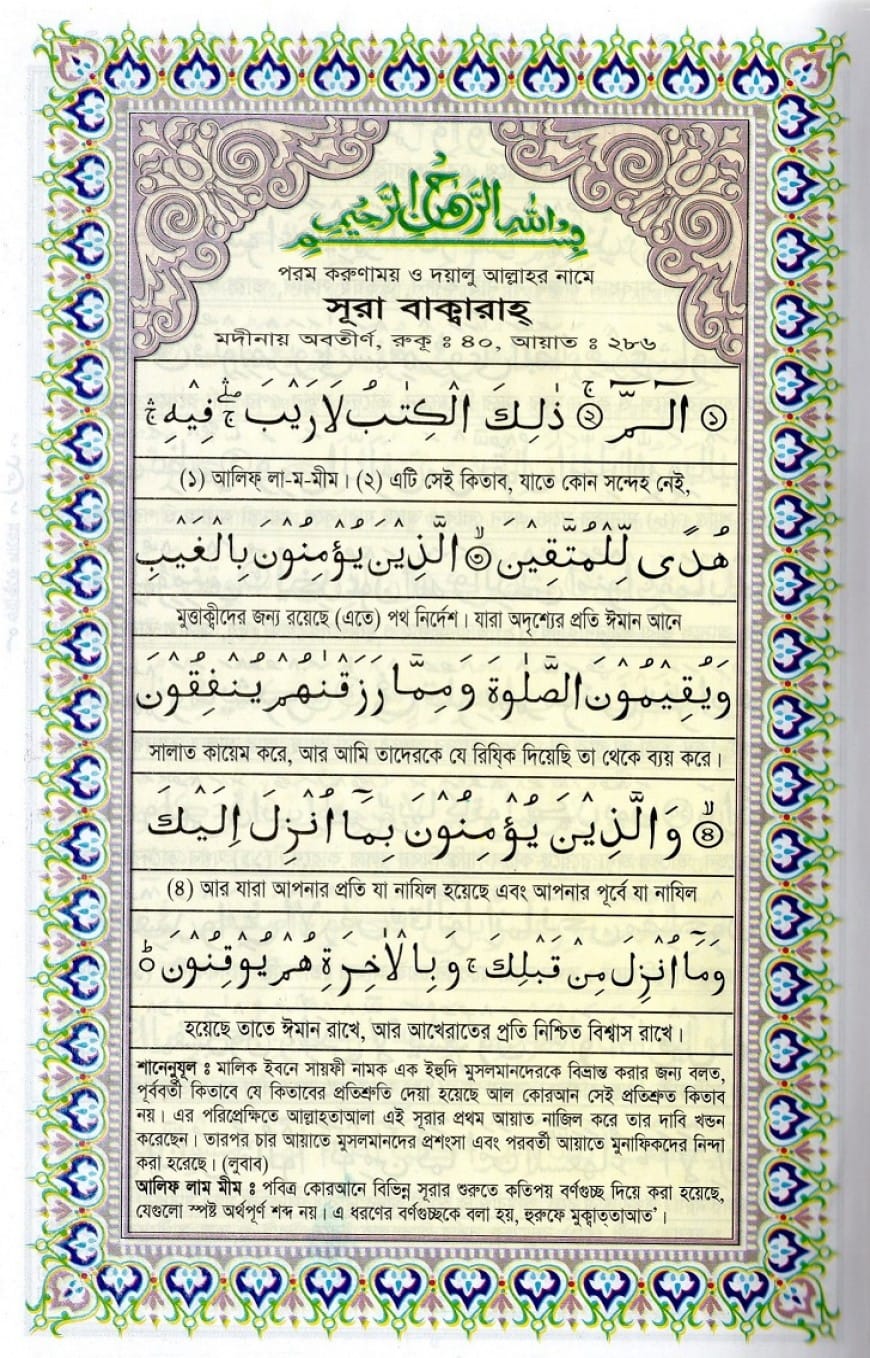 بِسْمِ اللهِ الرَّحْمٰنِ الرَّحِيْمِ
পরম করুণাময় ও দয়ালু আল্লাহর নামে
সূরা বাক্বারাহ্
মদীনায় অবতীর্ণ, রুকূ ঃ ৪০, আয়াত ঃ ২৮৬
১ الٓـمّٓ ۚ ২ ذٰلِكَ الْكِتٰبُ لَا رَيْبَ ۛۖۚ فِيْهِ ۛۚ
(১) আলিফ্ লা-ম-মীম। (২) এটি সেই কিতাব, যাতে কোন সন্দেহ নেই,
هُدًى لِّلْمُتَّقِيْنَ ۙ ৩ الَّذِيْنَ يُؤْمِنُوْنَ بِالْغَيْبِ
মুত্তাক্বীদের জন্য রয়েছে (এতে) পথ নির্দেশ। যারা অদৃশ্যের প্রতি ঈমান আনে
وَيُقِيْمُوْنَ الصَّلٰوةَ وَمِمَّا رَزَقْنٰهُمْ يُنْفِقُوْنَ
সালাত কায়েম করে, আর আমি তাদেরকে যে রিয্বিক দিয়েছি তা থেকে ব্যয় করে।
ۙ ৪ وَالَّذِيْنَ يُؤْمِنُوْنَ بِمَآ اُنْزِلَ اِلَيْكَ
(৪) আর যারা আপনার প্রতি যা নাযিল হয়েছে এবং আপনার পূর্বে যা নাযিল
وَمَآ اُنْزِلَ مِنْ قَبْلِكَ ۚ وَبِالْاٰخِرَةِ هُمْ يُوْقِنُوْنَ ؕ
হয়েছে তাতে ঈমান রাখে, আর আখেরাতের প্রতি নিশ্চিত বিশ্বাস রাখে।
শানেনুযূল ঃ মালিক ইবনে সায়ফী নামক এক ইহুদি মুসলমানদেরকে বিভ্রান্ত করার জন্য বলত,
পূর্ববর্তী কিতাবে যে কিতাবের প্রতিশ্রুতি দেয়া হয়েছে আল কোরআন সেই প্রতিশ্রুত কিতাব
নয়। এর পরিপ্রেক্ষিতে আল্লাহতাআলা এই সূরার প্রথম আয়াত নাজিল করে তার দাবি খন্ডন
করেছেন। তারপর চার আয়াতে মুসলমানদের প্রশংসা এবং পরবর্তী আয়াতে মুনাফিকদের নিন্দা
করা হরেছে। (লুবাব)
আলিফ লাম মীম ঃ পবিত্র কোরআনে বিভিন্ন সূরার শুরুতে কতিপয় বর্ণগুচ্ছ দিয়ে করা হয়েছে,
যেগুলো স্পষ্ট অর্থপূর্ণ শব্দ নয়। এ ধরণের বর্ণগুচ্ছকে বলা হয়, হুরুফে মুক্বাত্তাআত'।